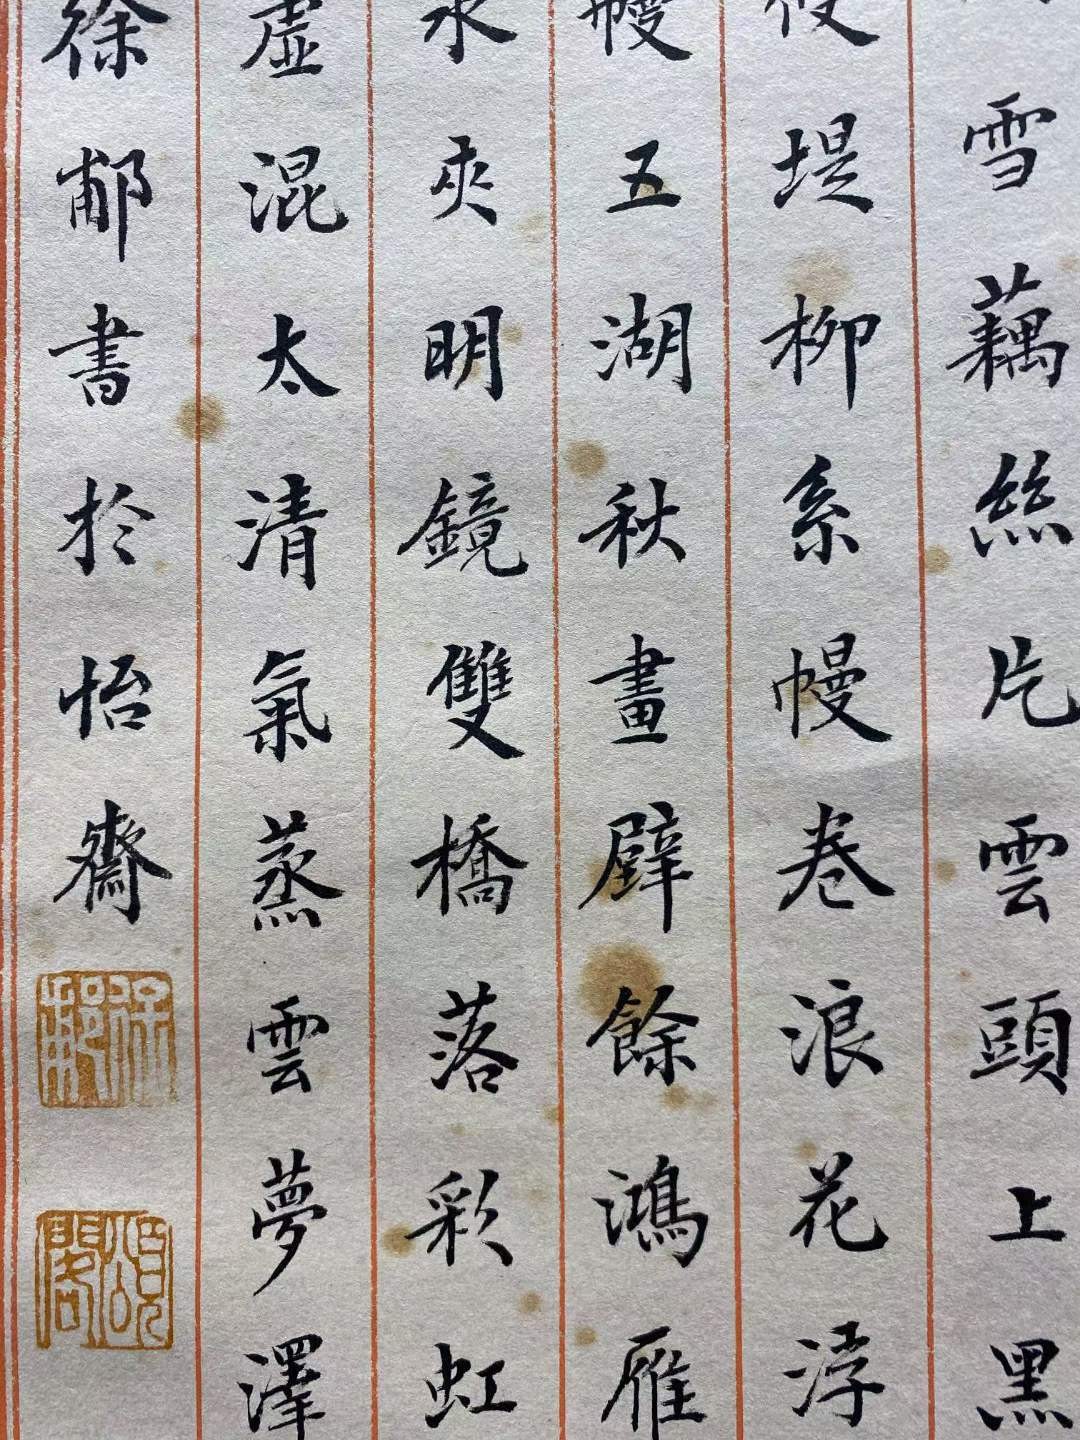 雪藕絲片雲頭上黑
堤柳系幔卷浪花浮
幔五湖秋畫壁餘鴻雁
水夾明鏡雙橋落彩虹
虛混太清氣蒸雲夢澤
徐郙書於怡齋
徐郙
頌閣